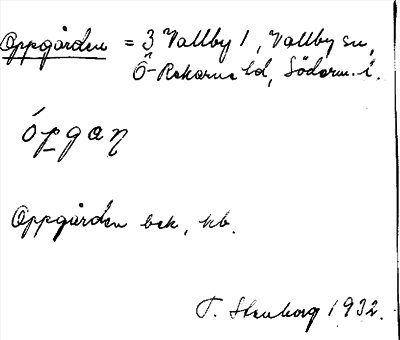 Oppgården = 3 Vallby 1, Vallby sn,
Ö-Rekarne hd, Söderm. l.
ópgaŋ
Oppgården bek, kb.
T. Stenborg 1932.